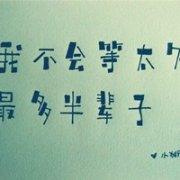 我不会等太久
最多半辈子